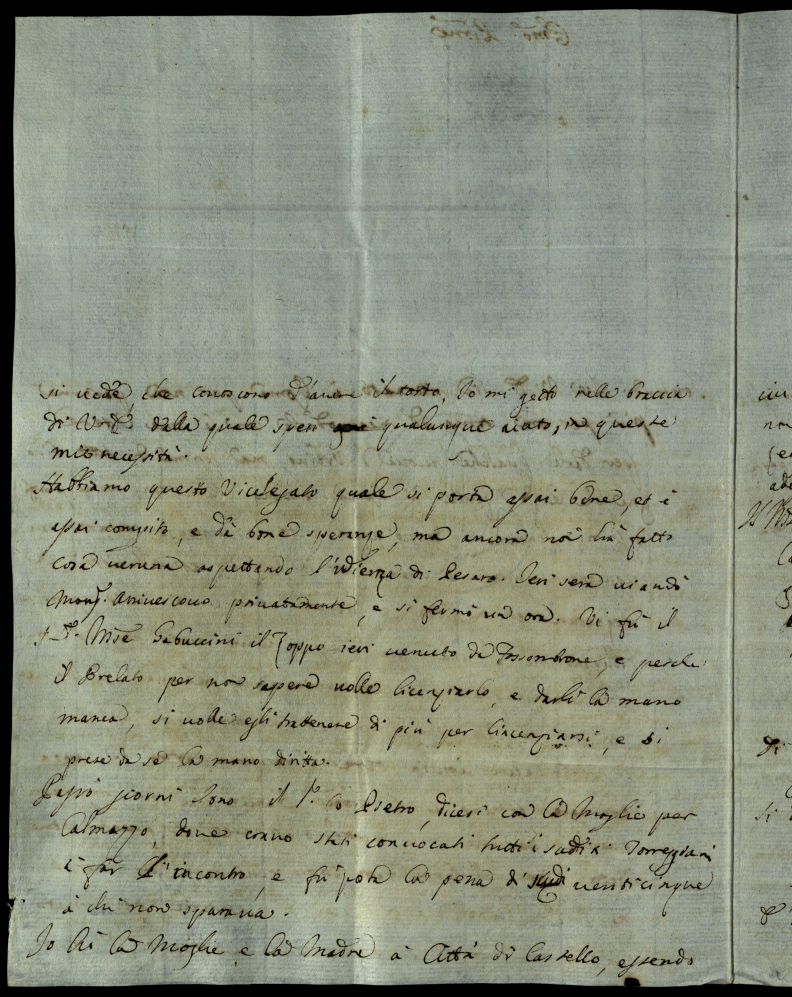 si vede, che conoscono d'avere il torto, Io mi getto nelle braccia
di V. E. dalla quale sperj qualunque aiuto, in queste
mie necessità.
Habbiamo questo Vicelegato quale si porta assai bene, et è
assai compito, e dà bone speranze, ma ancora non hà fatto
cosa veruna aspettando l'udienza di Pesaro. Ieri sera viandò
Mons. Arcivescovo privatamente, e si fermò un ora. Vi fù il
S. Mse Gabuccini il Zoppo ieri venuto da Fossombrone, e perche
il Prelato per non sapere volle licenziarlo, e darli la mano
manca, si volle egli trattenere di più per licenziarsi, e si
prese da se la mano dirita.
Passò giorni sono il S. Co Pietro, dicesi con la Moglie per
Calmazzo, dove erano stati convocati tutti i sudditi Torreggiani
à far l'incontro, e fù posta la pena di scudi venticinque
à chi non sparava.
Io hò la Moglie, e la Madre à Città di Castello, essendo